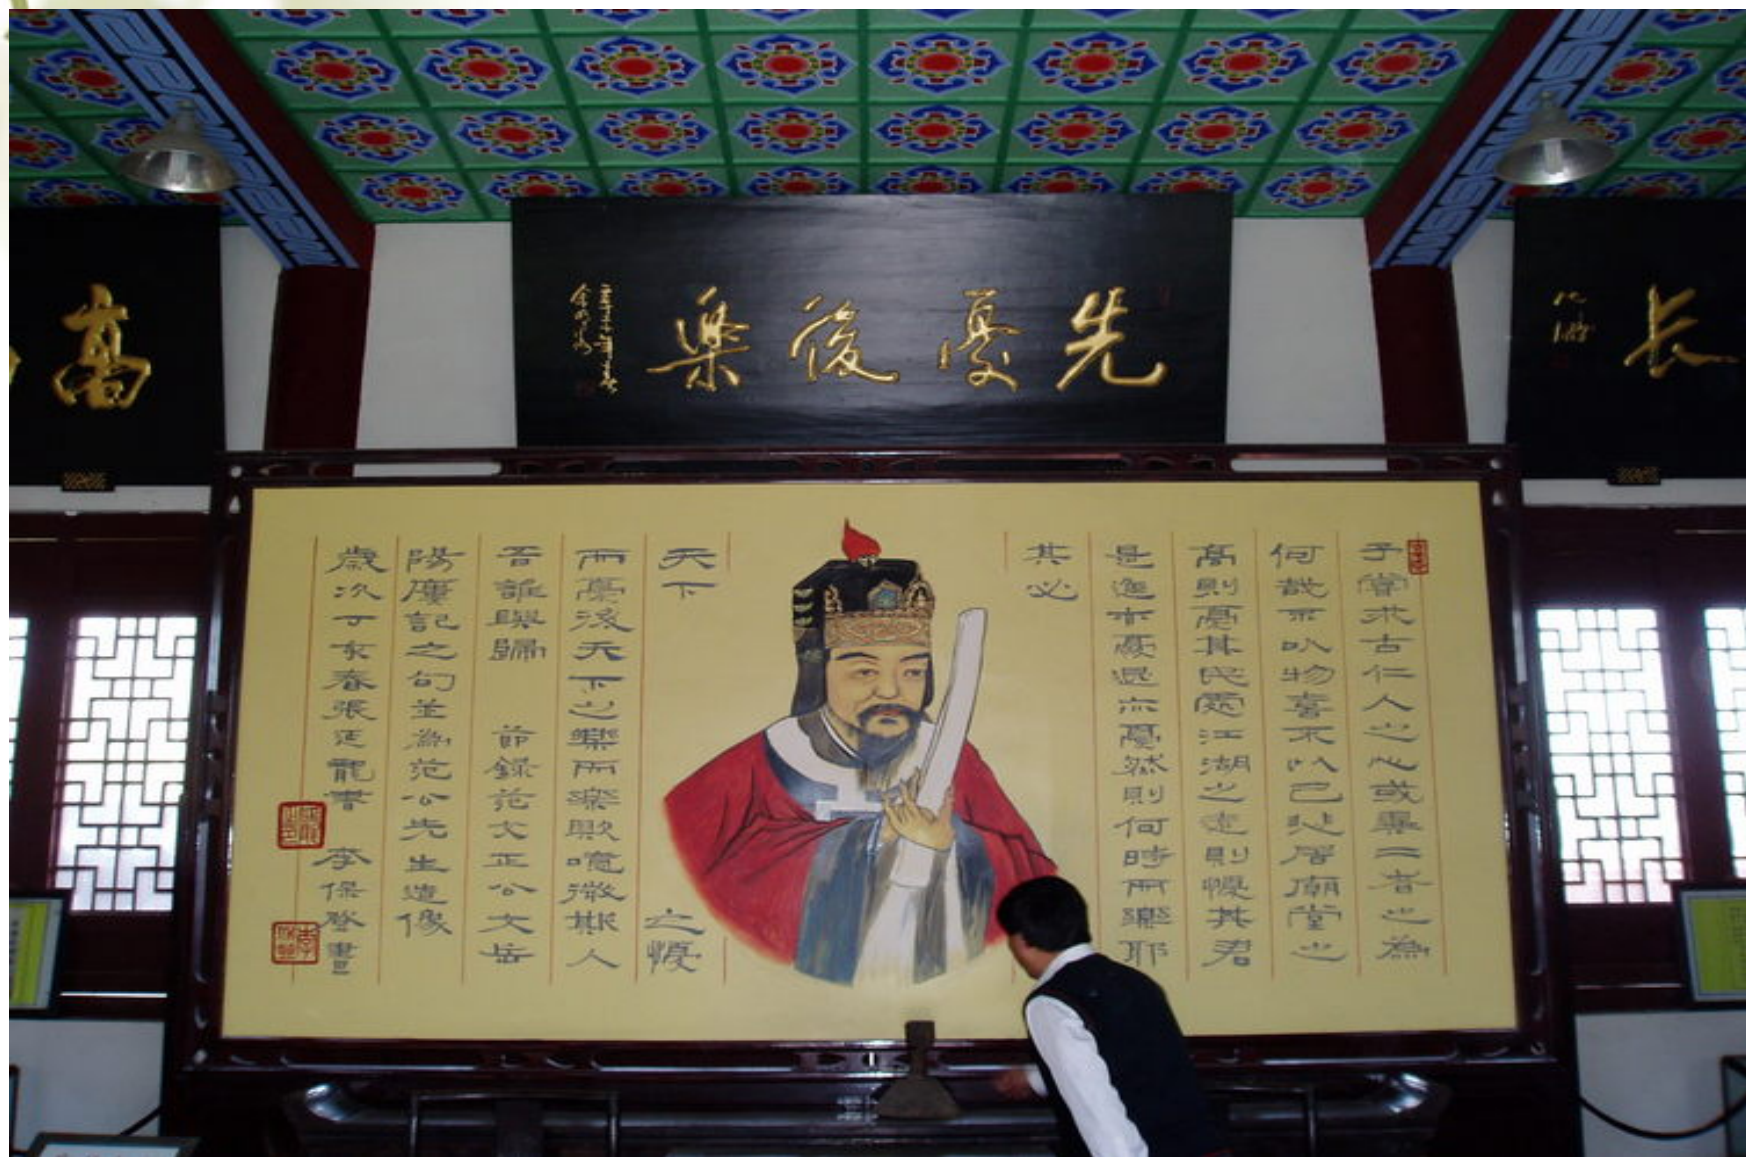 先憂後樂
长
高
予嘗求古仁人之心或異二者之為
何哉不以物喜不以己悲居廟堂之
高則憂其民處江湖之遠則懮其君
是進亦憂退亦憂然則何時而樂耶
其必
天下之懮
而憂後天下之樂而樂歟噫微斯人
吾誰與歸 節錄范文正公文岳
陽廔記之句並為范公先生造像
歲次丁亥春張廷龍書 李保登畫